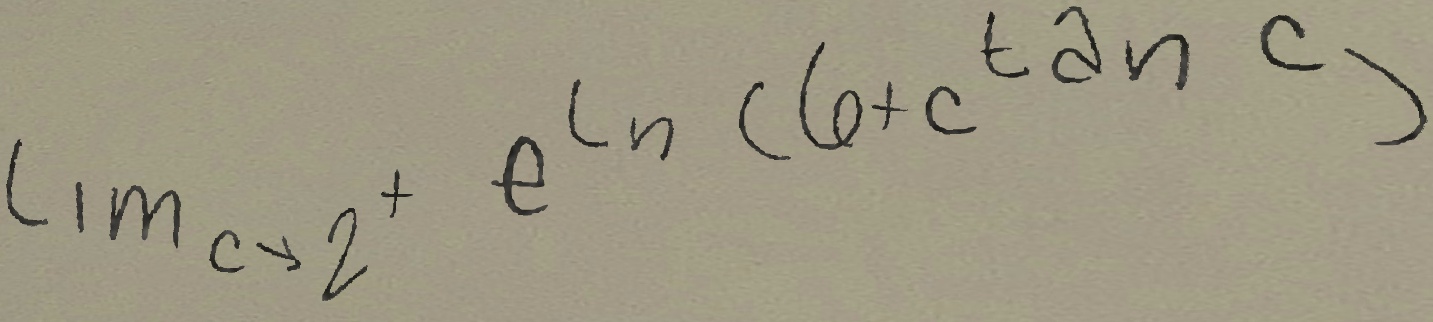 lim_{c→2^+} e^{ln(6+c^{tan c})}